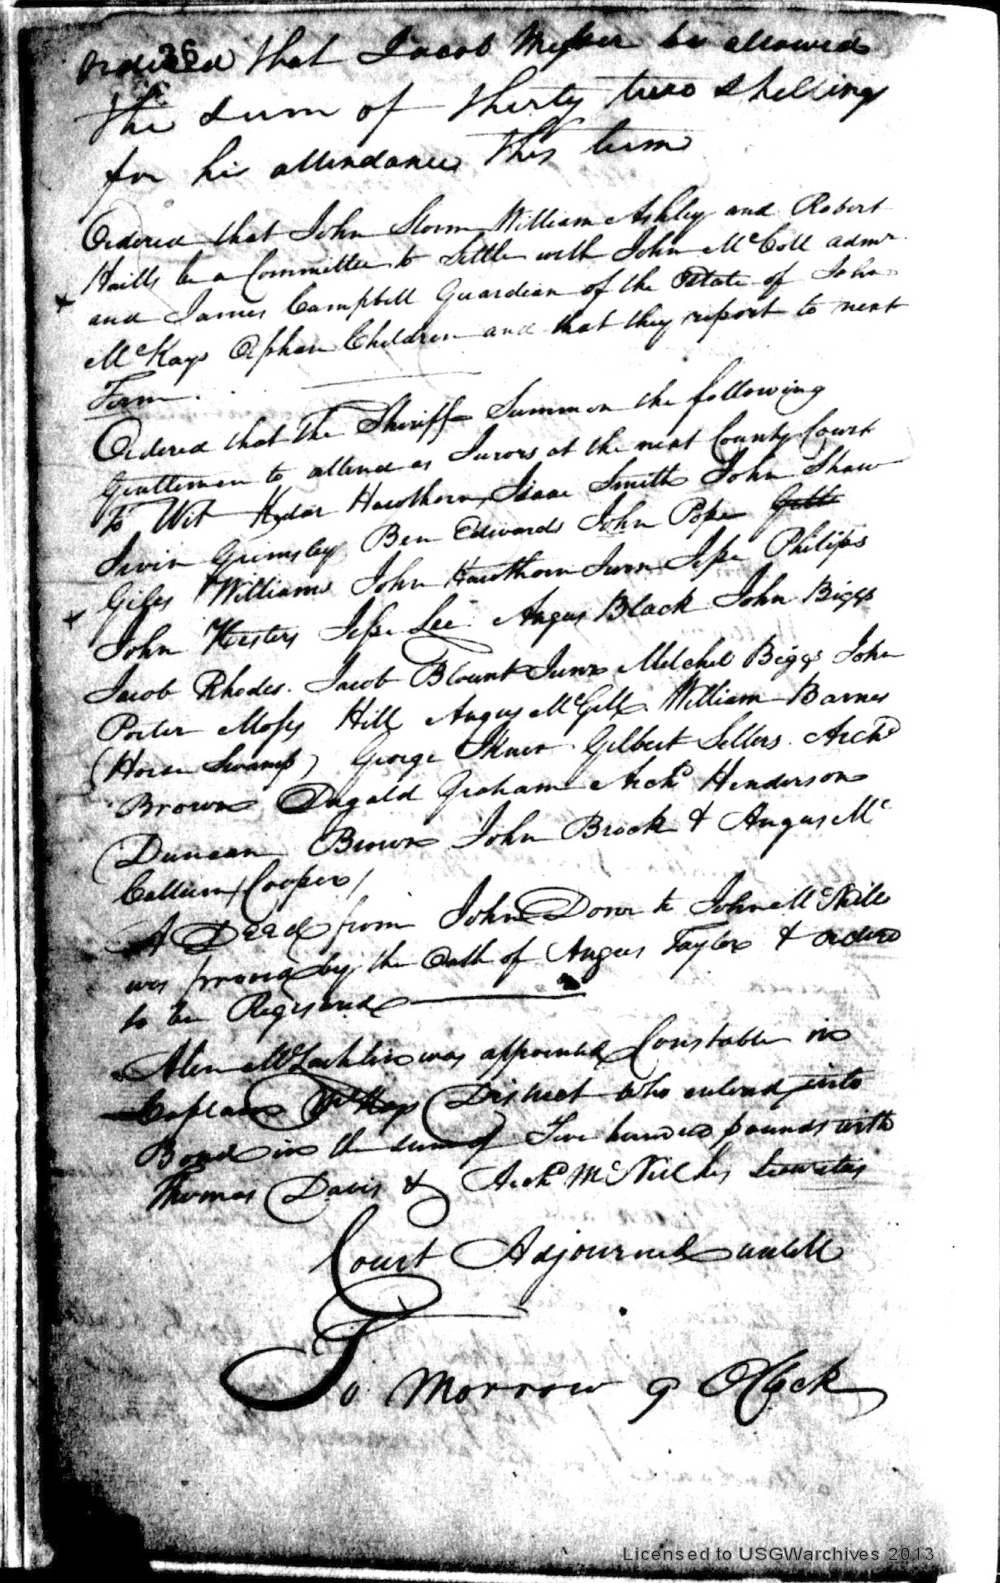 26
Ordered that Jacob Messer be allowed
the sum of thirty two shillings
for his attendance this term
Ordered that John Storm William Ashley and Robert
Haills be a Committee to Settle with John McColl admr.
and James Campbell Guardian of the Estate of John
McKays Orphan Children and that they report to next
Term.
Ordered that the Sheriff Summon the following
Gentlemen to attend as Jurors at the next County Court
To Wit Kedar Hawthorn, Isaac Smith John Shaw
Irvin Grimsley Ben Edwards John Pope
Giles Williams John Hawthorn Junr Jesse Philips
John Kersters Jesse Lee Angus Black John Biggs
Jacob Rhodes. Jacob Blount Junr Mitchel Biggs John
Porter Moses Hill Angus McGill William Barnes
(Horse Swamp) George Skner Gilbert Sellers. Archd
Brown Dugald Graham Archd Henderson
Duncan Brown John Brock & Angus Mc
Callum (Cooper)
A Deed from John Dove to John McNeill
was proved by the Oath of Angus Taylor & orderd
to be Registered
Allen McLachlin was appointed Constable in
Captain McKays District who enterd into
Bond in the sum of Five hundred pounds with
Thomas Davis & Archd McNeil his Securities
Court Adjourned untill
To Morrow 9 OClock
Licensed to USGWarchives 2013